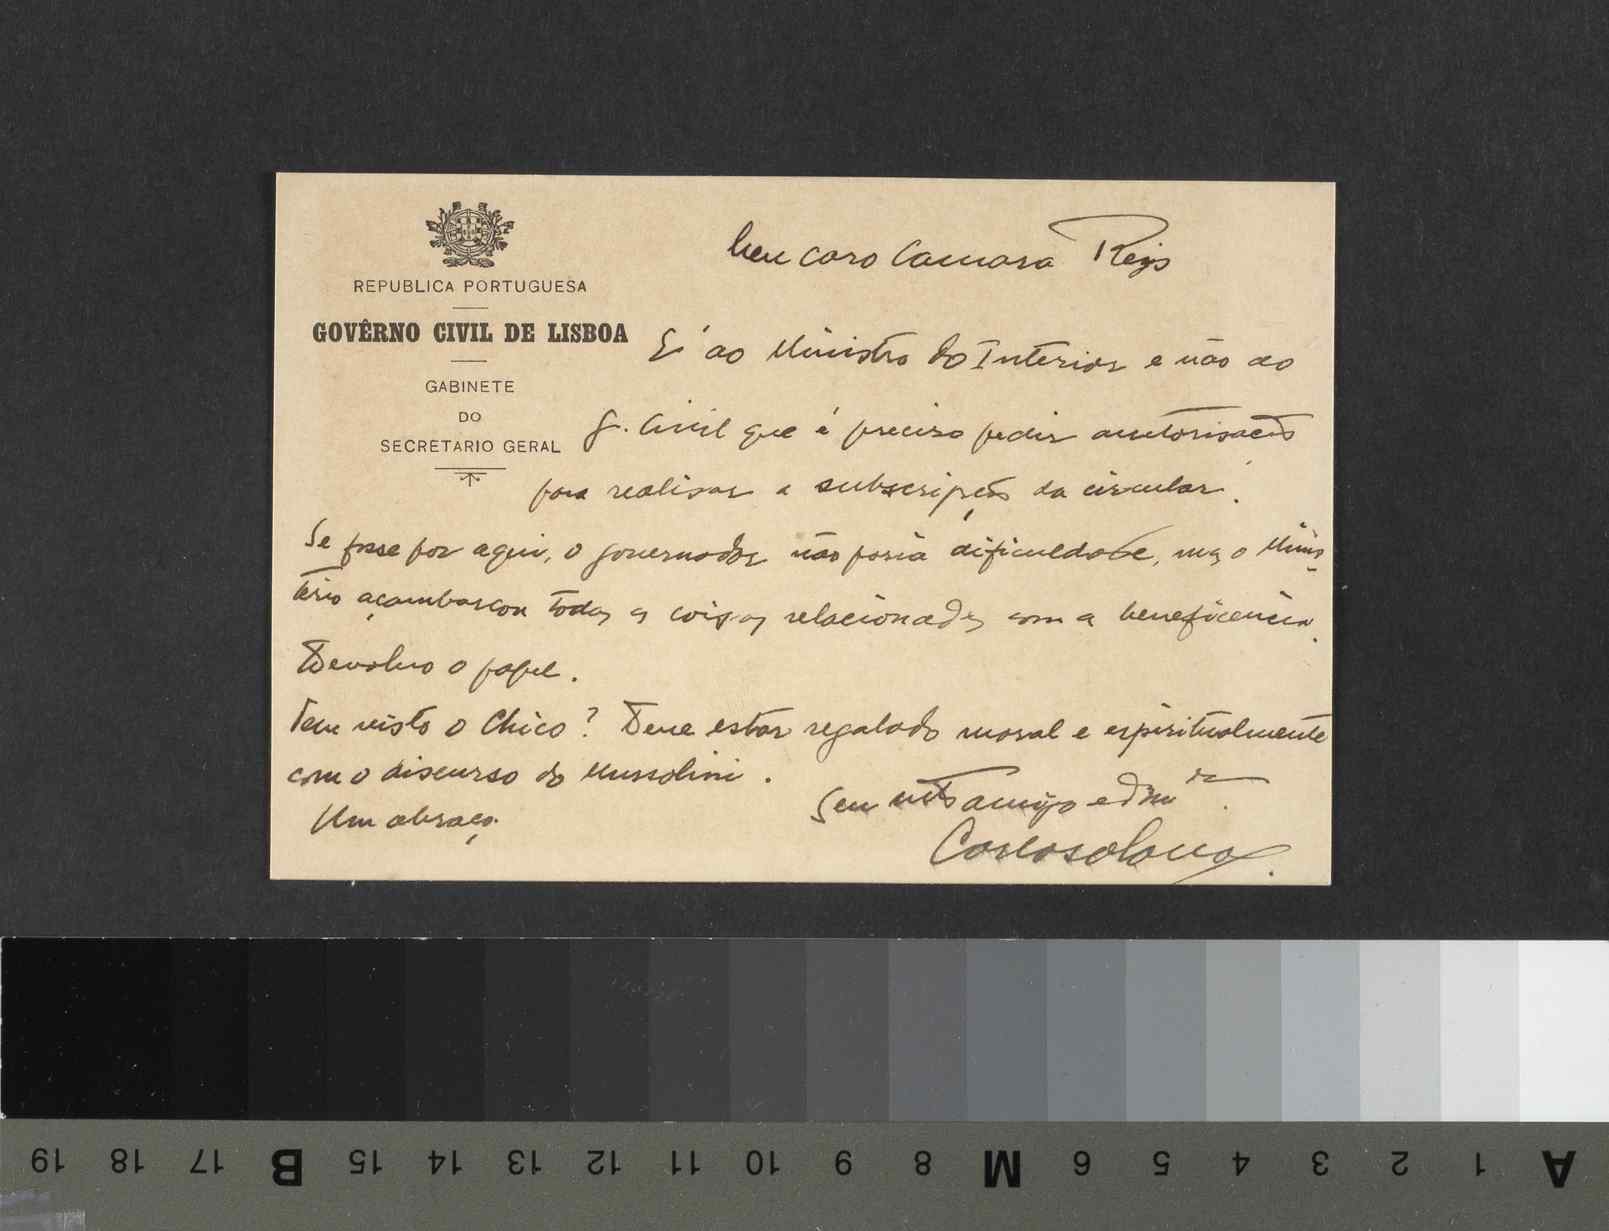 REPUBLICA PORTUGUESA
GOVÊRNO CIVIL DE LISBOA
GABINETE
DO
SECRETARIO GERAL
Meu caro Camara Reys
E' ao Ministro do Interior e não ao
G. Civil que é preciso pedir auctorisação
para realisar a subscripção da circular.
Se fosse por aqui, o governador não poria dificuldade, mas o Minis-
tério açambarcou todas as coisas relacionadas com a beneficencia.
Devolvo o papel.
Tem visto o Chico? Deve estar regalado moral e espiritualmente
com o discurso do Mussolini.
Um abraço.
Seu mto amigo e dm
19 18 17 B 15 14 13 12 11 10 9 8 M 6 5 4 3 2 1 A